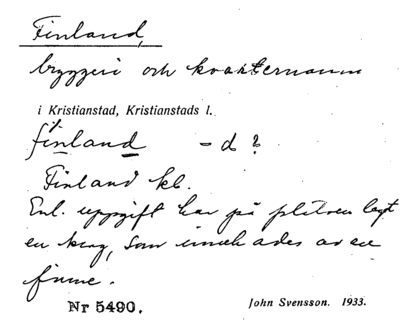 Finland,
bryggeri och kvarternamn
i Kristianstad, Kristianstads l.
finland - d ?
Finland kb.
Enl. uppgift har på platsen legat
en krog, som innehades av en
finne.
Nr 5490. John Svensson. 1933.